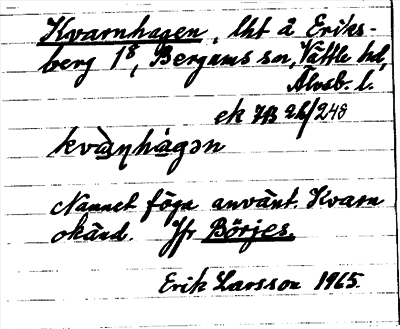 Kvarnhagen, lht å Eriks-
berg 1⁸, Bergums sn, Vättle hd,
Älvsb. l.
ek 7B 2h/248
kvà̀ṇhàgən
Namnet föga använt. Kvarn
okänd. Jfr Börjes.
Erik Larsson 1965.